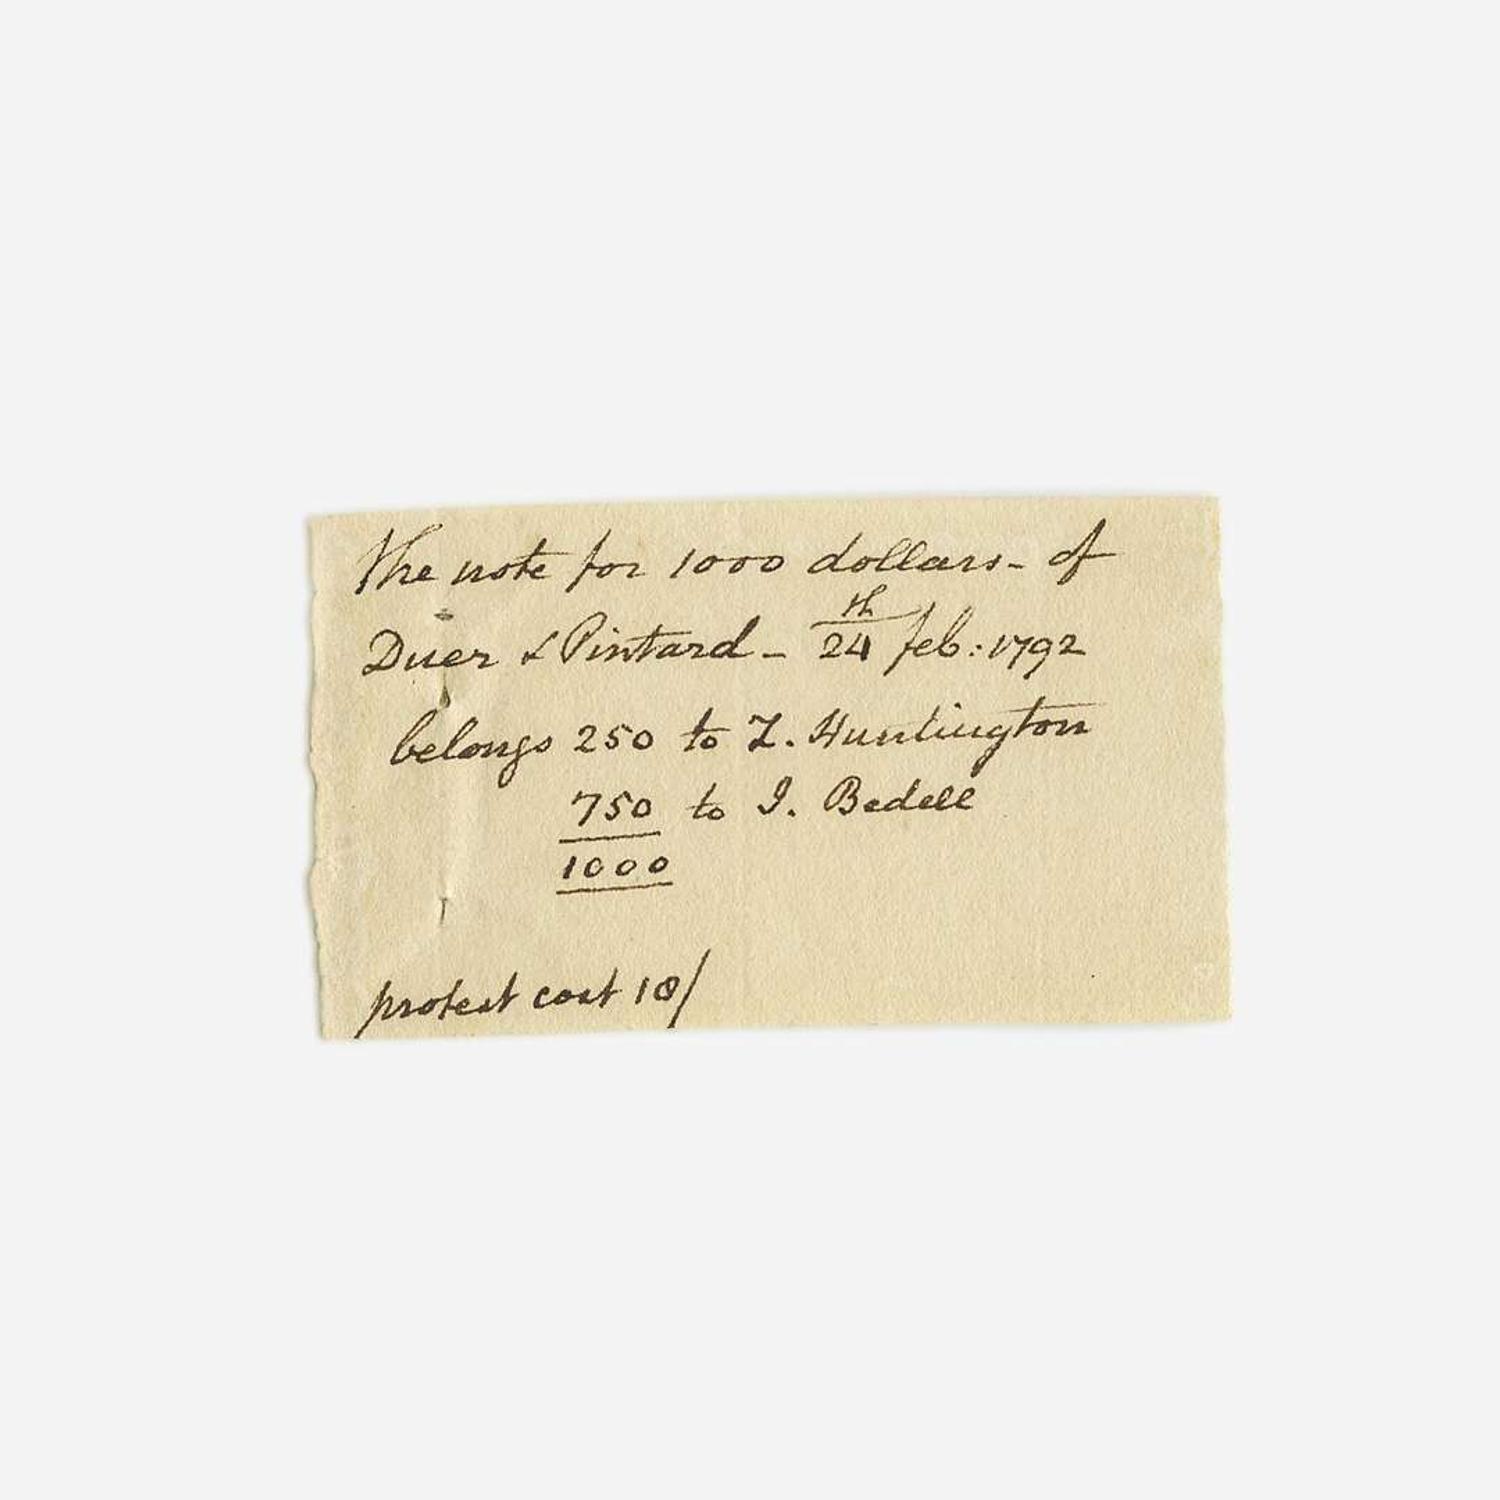 The note for 1000 dollars - of
Duer & Pintard - 24th feb: 1792
belongs 250 to Z. Huntington
750 to I. Bedell
1000
protest cost 18/